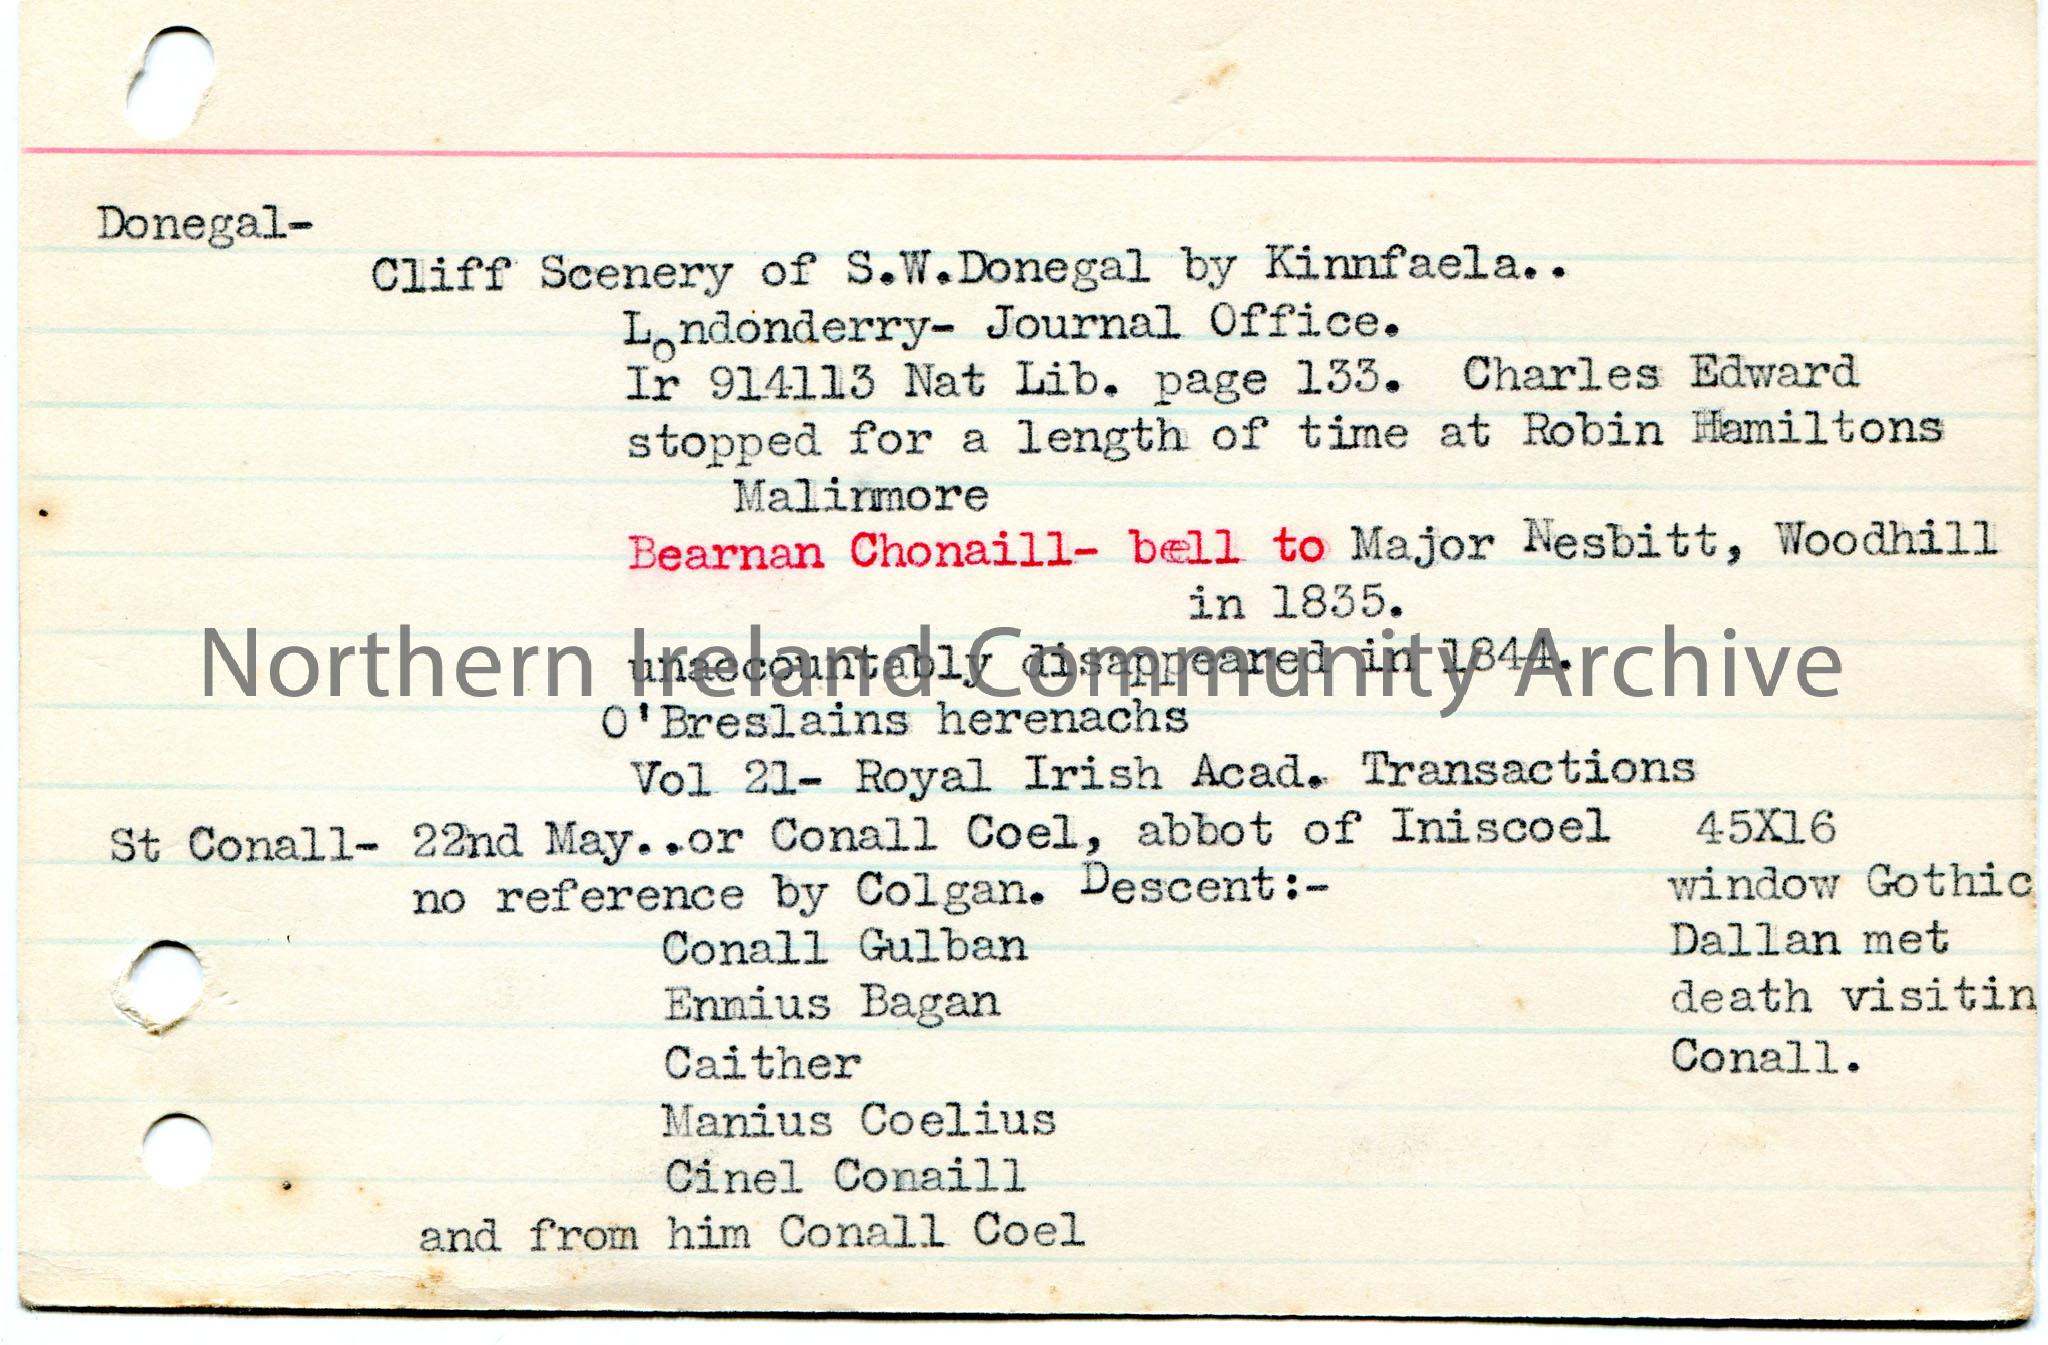 Donegal-
Cliff Scenery of S.W.Donegal by Kinnfaela..
Londonderry- Journal Office.
Ir 914113 Nat Lib. page 133. Charles Edward
stopped for a length of time at Robin Hamiltons
Malinmore
Bearnan Chonaill- bell to Major Nesbitt, Woodhill
in 1835.
Northern Ireland Community Archive
unaccountably disappeared in 1844.
O'Breslains herenachs
Vol 21- Royal Irish Acad. Transactions
St Conall- 22nd May..or Conall Coel, abbot of Iniscoel 45X16
no reference by Colgan. Descent:- window Gothic
Conall Gulban Dallan met
Ennius Bagan death visitin
Caither Conall.
Manius Coelius
Cinel Conaill
and from him Conall Coel